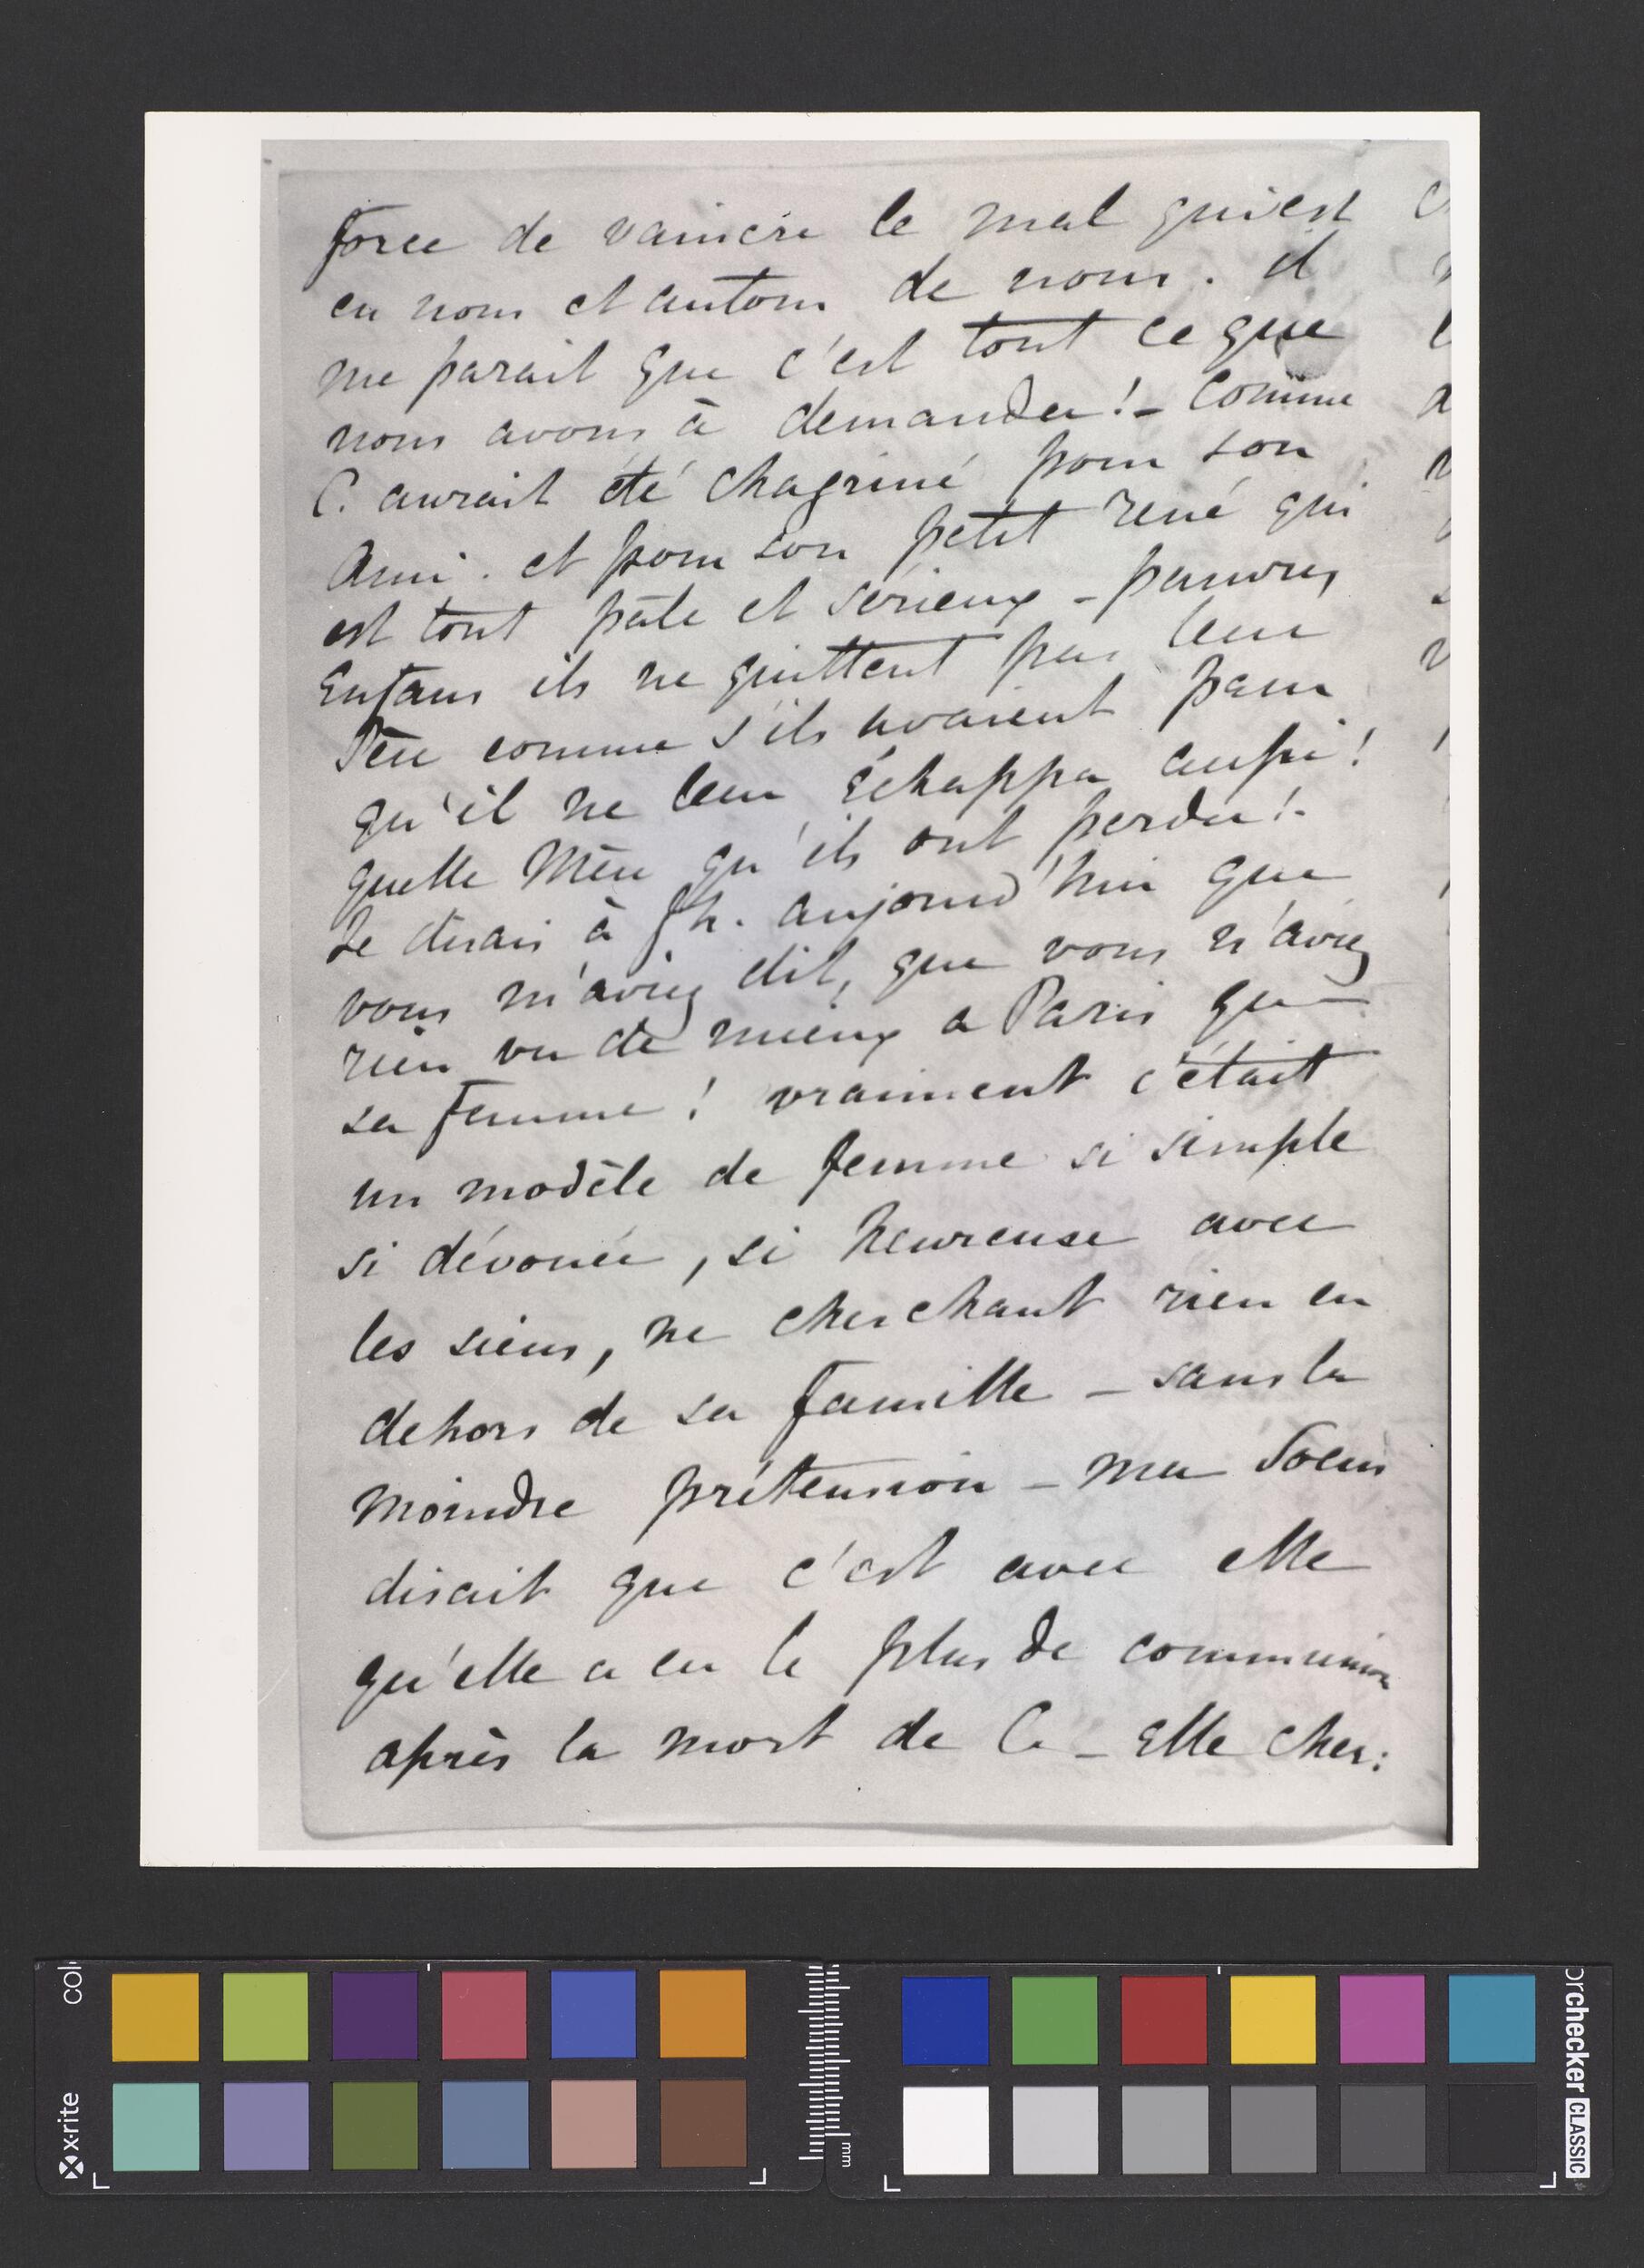 force de vaincre le mal qui est
en nous et autour de nous. il
me parait que c'est tout ce que
nous avons à demander! - Comme
C. aurait été chagriné pour son
Ami. et pour son petit rené qui
est tout pâle et sérieux - pauvres
Enfans ils ne quittent pas leur
Père comme s'ils avaient peur
qu'il ne leur échappa aussi!
quelle Mère qu'ils ont perdu! -
Je disais à Ph. aujourd'hui que
vous m'aviez dit, que vous n'aviez
rien vu de mieux a Paris que
sa femme! vraiment c'était
un modèle de femme si simple
si dévouée, si heureuse avec
les siens, ne cherchant rien en
dehors de sa famille - sans la
moindre prétension - ma Soeur
disait que c'est avec elle
qu'elle a eu le plus de communion
après la mort de C. - Elle cher:
x-rite
col
mm
orchecker CLASSIC